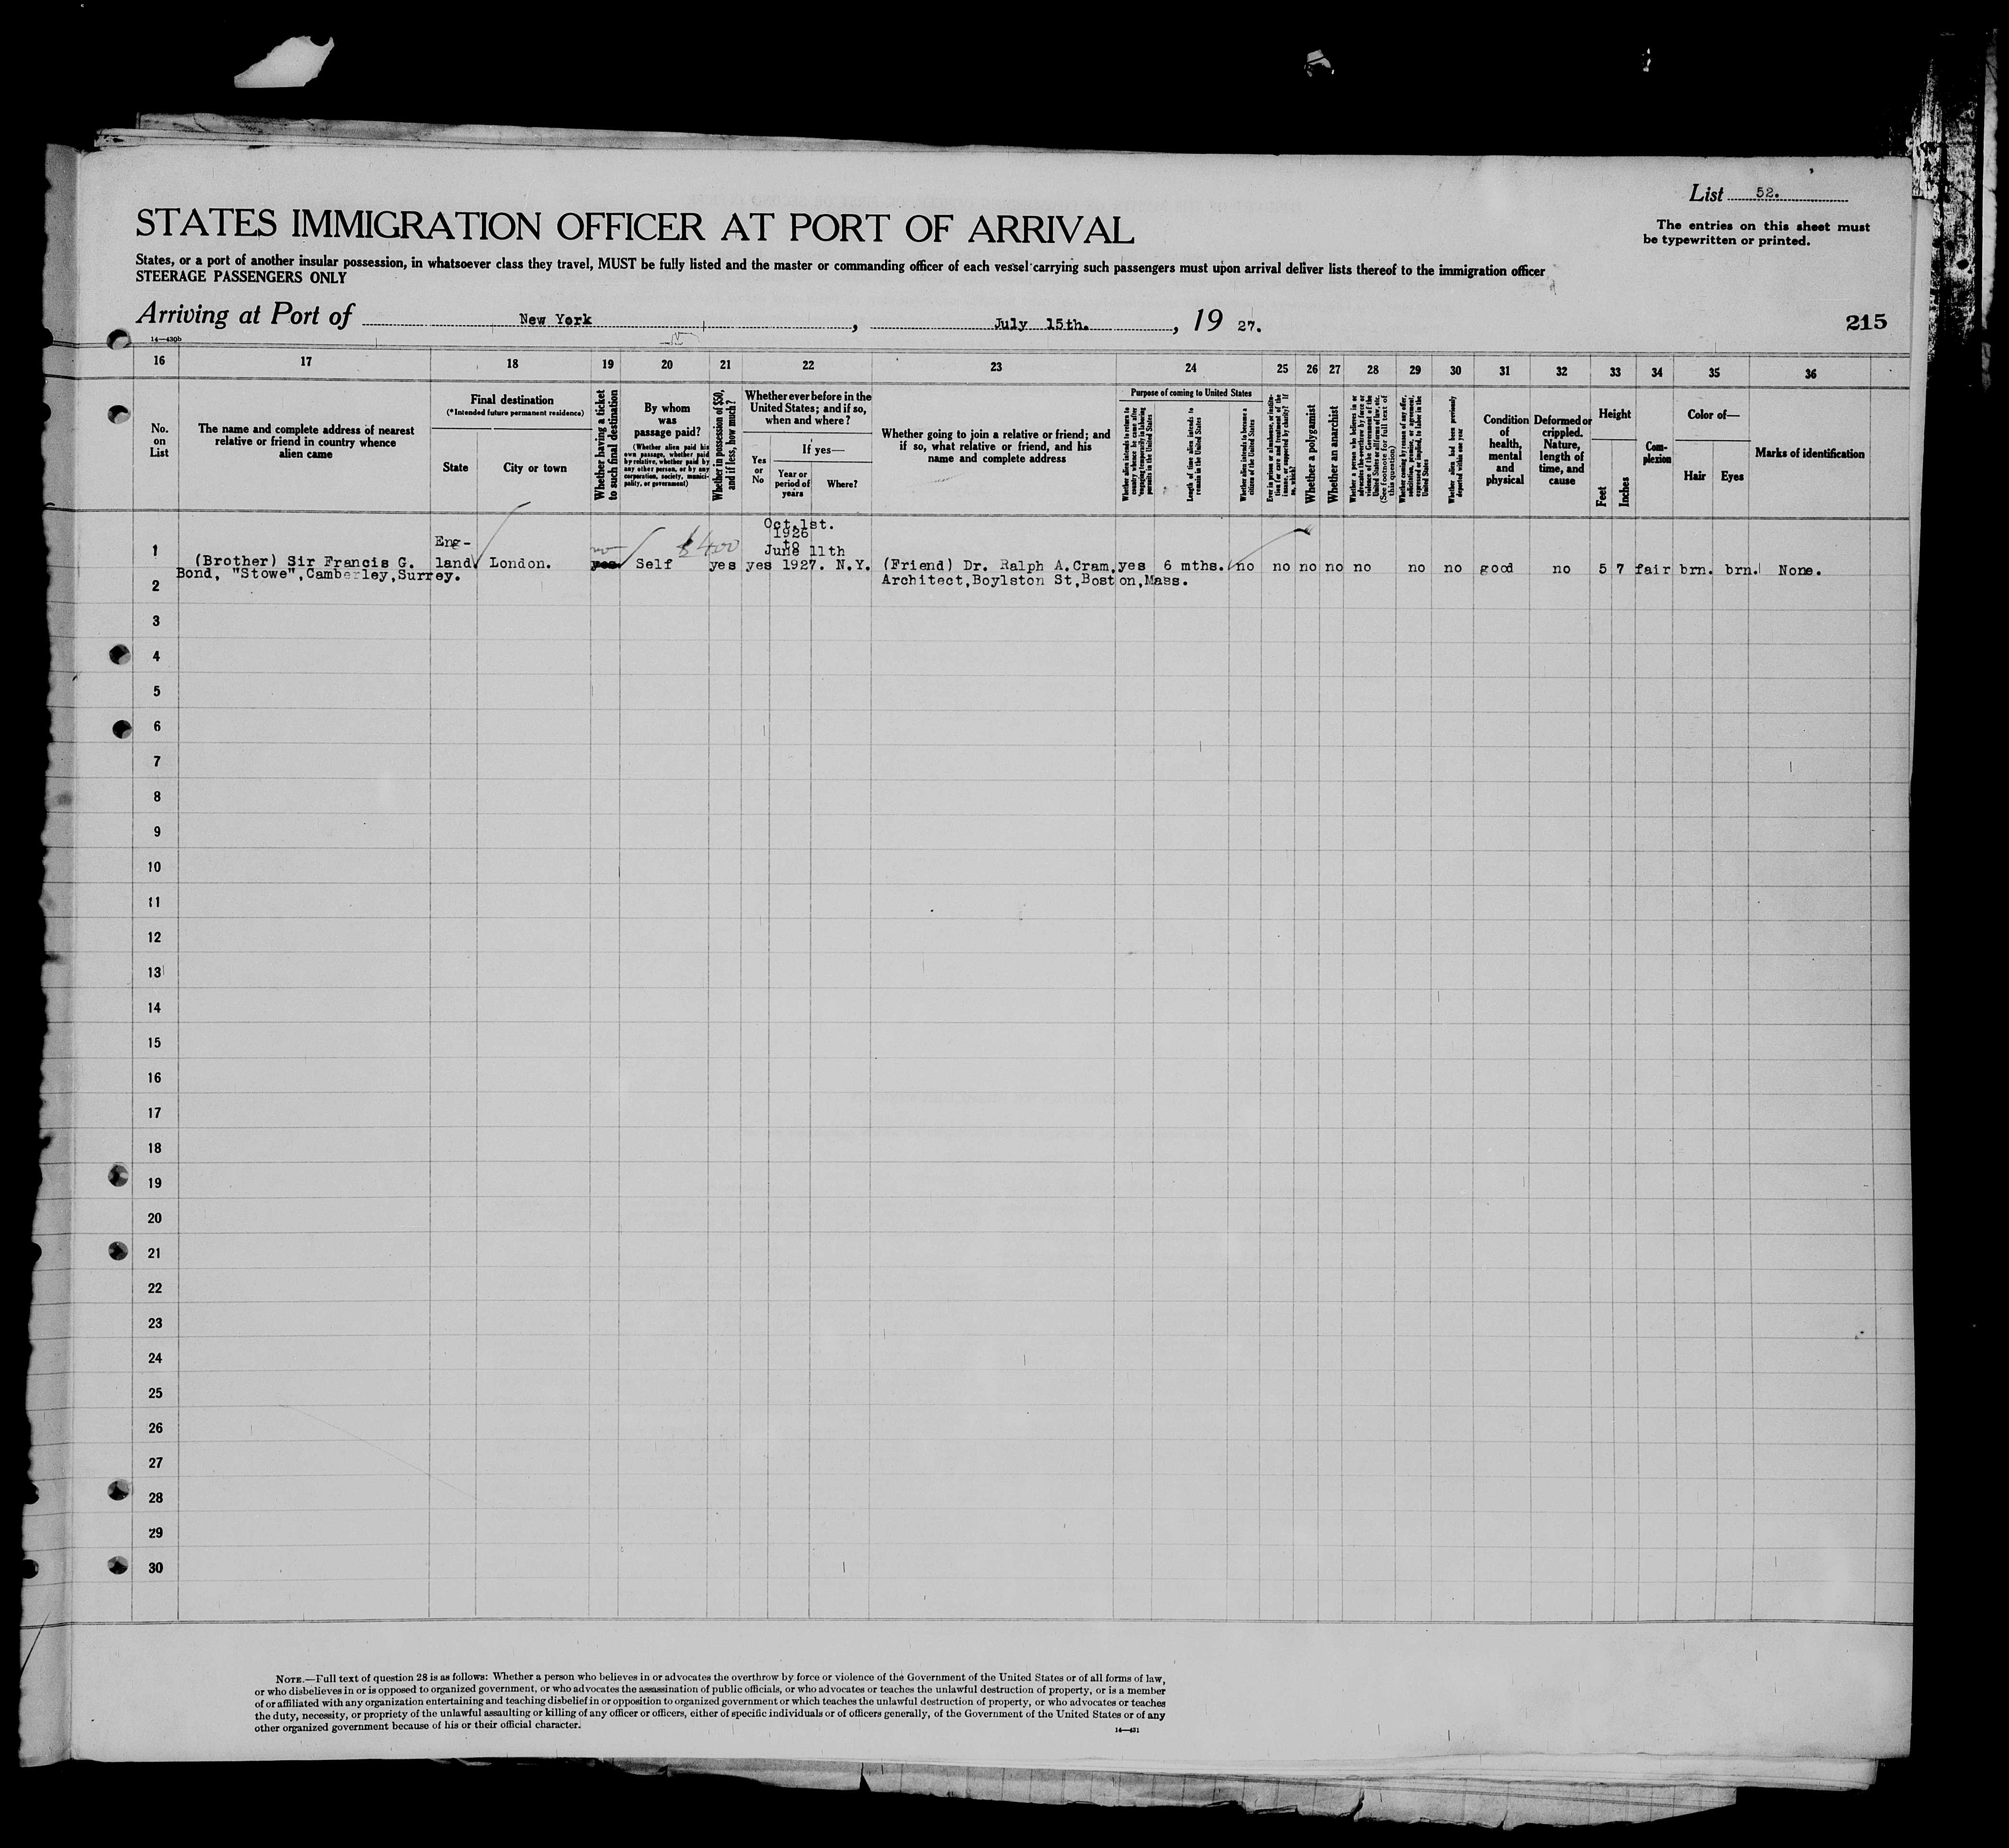 List 52.
The entries on this sheet must
be typewritten or printed.
STATES IMMIGRATION OFFICER AT PORT OF ARRIVAL
States, or a port of another insular possession, in whatsoever class they travel, MUST be fully listed and the master or commanding officer of each vessel carrying such passengers must upon arrival deliver lists thereof to the immigration officer
STEERAGE PASSENGERS ONLY
Arriving at Port of New York, July 15th., 19 27.
215
14—430b
16 17 18 19 20 21 22 23 24 25 26 27 28 29 30 31 32 33 34 35 36
No.
on
List
The name and complete address of nearest
relative or friend in country whence
alien came
Final destination
(*Intended future permanent residence)
State
City or town
Whether having a ticket
to such final destination
By whom
was
passage paid?
(Whether alien paid his
own passage, whether paid
by relative, whether paid by
any other person, or by any
corporation, society, munici-
pality, or government)
Whether in possession of $50,
and if less, how much?
Whether ever before in the
United States; and if so,
when and where?
Yes
or
No
If yes—
Year or
period of
years
Where?
Whether going to join a relative or friend; and
if so, what relative or friend, and his
name and complete address
Purpose of coming to United States
Whether alien intends to return to
country whence he came after
engaging temporarily in laboring
pursuits in the United States
Length of time alien intends to
remain in the United States
Whether alien intends to become a
citizen of the United States
Ever in prison or almshouse, or institu-
tion for care and treatment of the
insane, or supported by charity? If
so, which?
Whether a polygamist
Whether an anarchist
Whether a person who believes in or
advocates the overthrow by force or
violence of the Government of the
United States or all forms of law, etc.
(See footnote for full text of
this question)
Whether coming by reason of any offer,
solicitation, promise, or agreement,
expressed or implied, to labor in the
United States
Whether alien had been previously
deported within one year
Condition
of
health,
mental
and
physical
Deformed or
crippled.
Nature,
length of
time, and
cause
Height
Feet
Inches
Com-
plexion
Color of—
Hair
Eyes
Marks of identification
1
(Brother) Sir Francis G.
Bond, "Stowe",Camberley,Surrey.
Eng-
land
London.
no
yes.
Self
$400
yes
yes
Oct.1st.
1926
to
June 11th
1927. N.Y.
(Friend) Dr. Ralph A.Cram,
Architect,Boylston St,Boston,Mass.
yes 6 mths. no no no no no no no good no 5 7 fair brn. brn. None.
2
3
4
5
6
7
8
9
10
11
12
13
14
15
16
17
18
19
20
21
22
23
24
25
26
27
28
29
30
NOTE.—Full text of question 28 is as follows: Whether a person who believes in or advocates the overthrow by force or violence of the Government of the United States or of all forms of law,
or who disbelieves in or is opposed to organized government, or who advocates the assassination of public officials, or who advocates or teaches the unlawful destruction of property, or is a member
of or affiliated with any organization entertaining and teaching disbelief in or opposition to organized government or which teaches the unlawful destruction of property, or who advocates or teaches
the duty, necessity, or propriety of the unlawful assaulting or killing of any officer or officers, either of specific individuals or of officers generally, of the Government of the United States or of any
other organized government because of his or their official character.
14—431